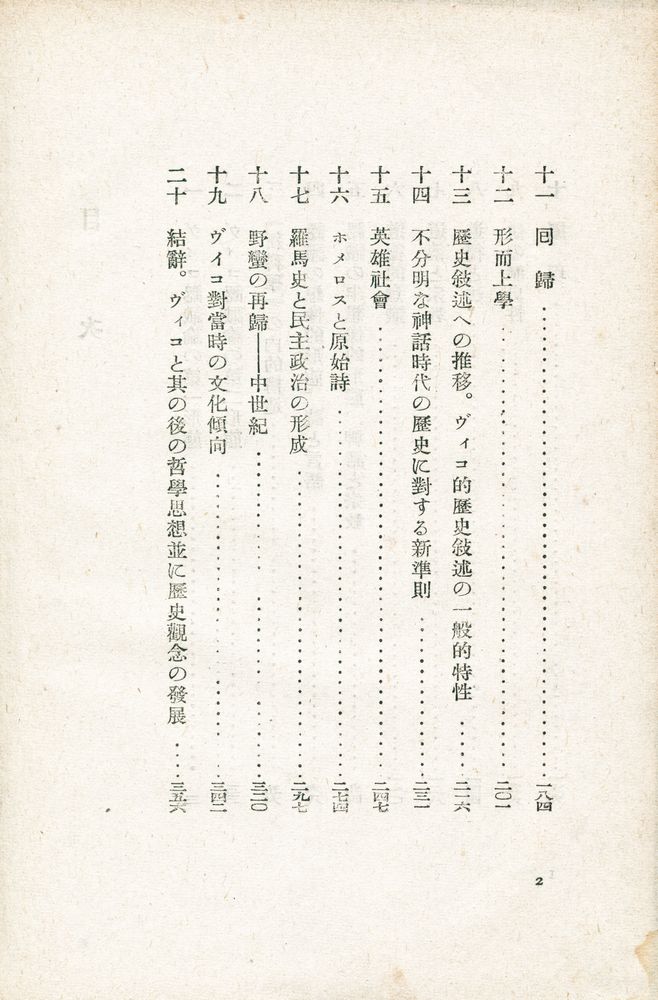 十一 囘歸……一八四
十二 形而上學……二〇一
十三 歷史敍述への推移。ヴィコ的歷史敍述の一般的特性……二一六
十四 不分明な神話時代の歷史に對する新準則……二三一
十五 英雄社會……二四七
十六 ホメロスと原始詩……二七四
十七 羅馬史と民主政治の形成……二九七
十八 野蠻の再歸――中世紀……三二〇
十九 ヴィコ對當時の文化傾向……三四二
二十 結辭。ヴィコと其の後の哲學思想並に歷史觀念の發展……三五六
2